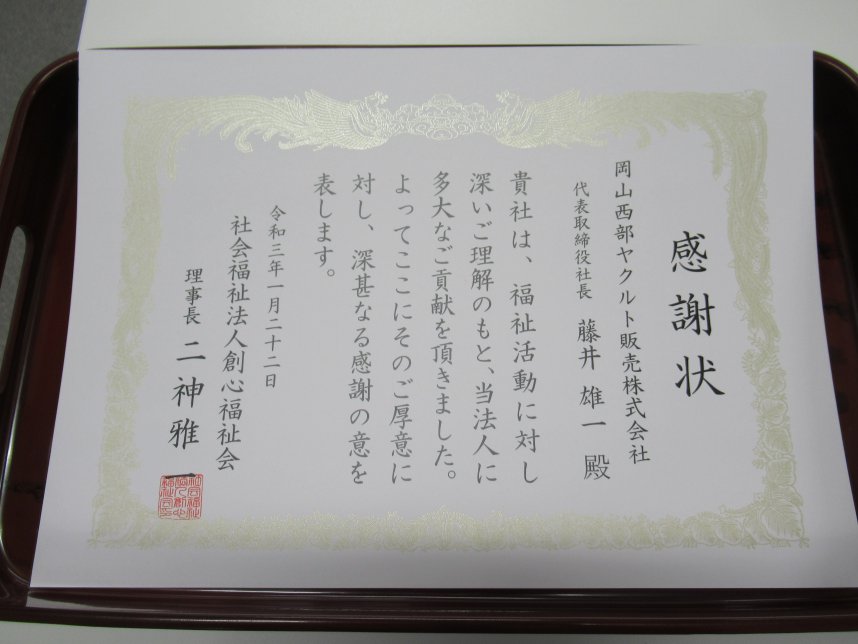 感謝状
岡山西部ヤクルト販売株式会社
代表取締役社長 藤井雄一殿
貴社は、福祉活動に対し
深いご理解のもと、当法人に
多大なご貢献を頂きました。
よってここにそのご厚意に
対し、深甚なる感謝の意を
表します。
令和三年一月二十二日
社会福祉法人創心福祉会
理事長 二神雅一